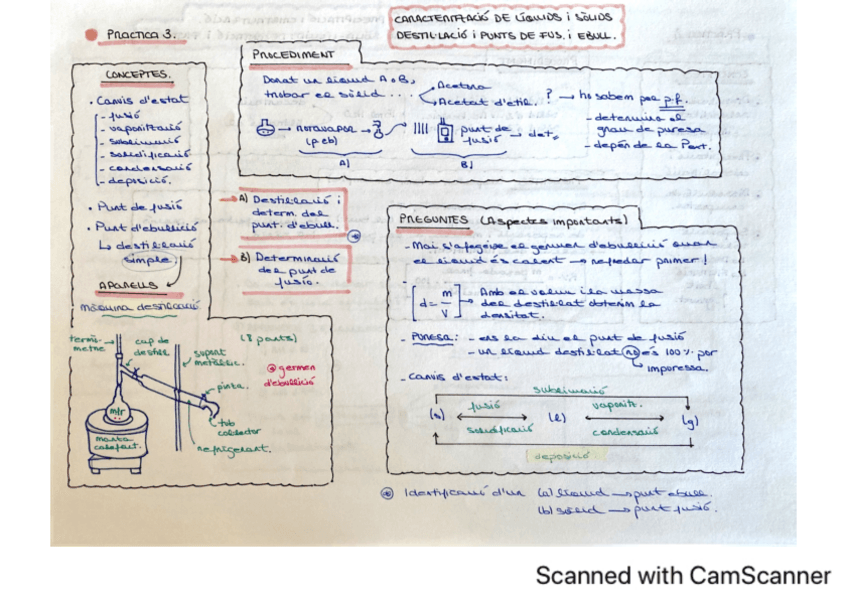 CARACTERITZACIÓ DE LÍQUIDS i SÒLIDS
DESTIL·LACIÓ i PUNTS DE FUS. i EBULL.
PRACTICA 3.
CONCEPTES.
• Canvis d'estat
- fusió
- vaporització
- sublimació
- solidificació
- condensació
- deposició.
• Punt de fusió
• Punt d'ebullició
↳ destil·lació
simple.
APARELLS
Màquina destil·lació
PROCEDIMENT
Donat un líquid A o B,
trobar el sòlid ...
Acetona
Acetat d'etil.
? → ho sabem pel p.f.
- determina el
grau de puresa
- depèn de la Part.
→ rotavapor →
(p eb)
punt de
fusió → det.
A)
B)
A) Destil·lació i
determ. del
punt. d'ebull.
B) Determinació
del punt de
fusió.
PREGUNTES (Aspectes importants)
- Mai s'afegeix el germen d'ebullició quan
el líquid és calent → refredar primer!
- [d = m/V] → Amb el volum i la massa
del destil·lat obtenim la
densitat.
- PURESA: - ens la diu el punt de fusió
- un líquid destil·lat no és 100% per
impuresa.
- Canvis d'estat:
sublimació
(s) fusió (l) vaporitz. (g)
solidificació condensació
deposició
termò-
metre
cap de
destil.
(8 parts)
suport
metàl·lic.
germen
d'ebullició
pinça.
tub
col·lector
refrigerant.
mtr
manta
calefact.
Identificació d'un (a) líquid → punt ebull.
(b) sòlid → punt fusió.
Scanned with CamScanner